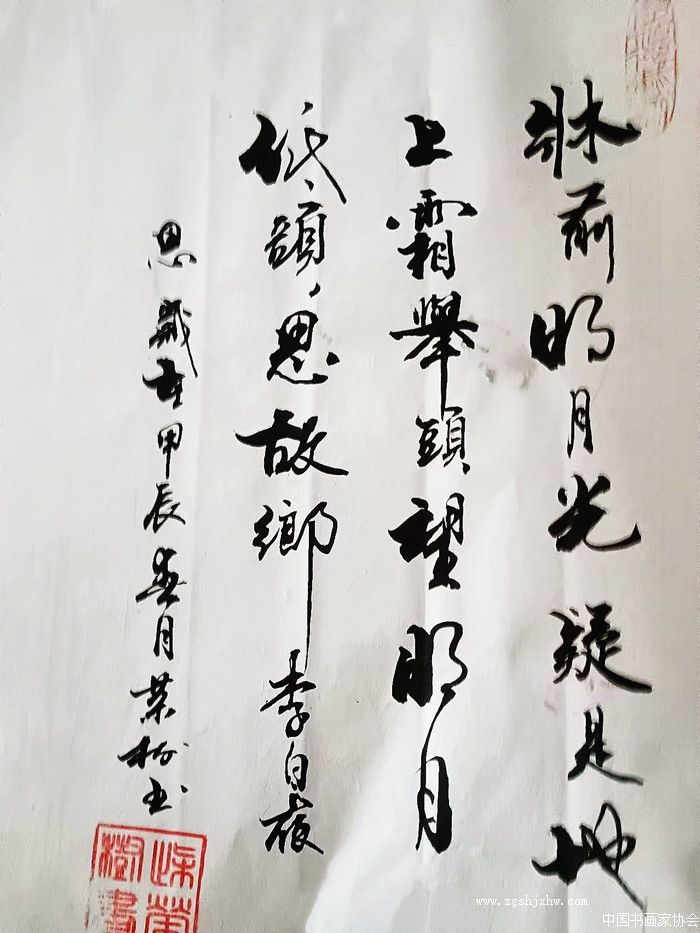 牀前明月光疑是地
上霜舉頭望明月
低頭思故鄉李白夜
思歲在甲辰春月榮樹书
榮樹書
www.zgshjxhw.com
中国书画家协会